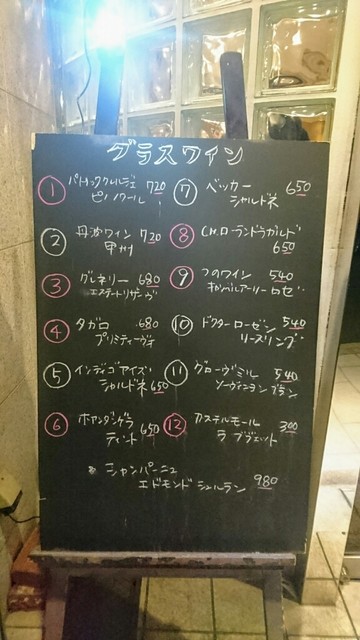 グラスワイン
① パトリッククルジェ 720
ピノノワール
② 丹波ワイン 720
甲州
③ グレネリー 680
エステートリザーヴ
④ タガロ 680
プリミティーヴォ
⑤ インディゴアイズ
シャルドネ 650
⑥ ホアンダングラ
ティント 650
⑦ ベッカー 650
シャルドネ
⑧ CH.ローランドラガルド
650
⑨ つのワイン 540
キャンベルアーリーロゼ
⑩ ドクターローゼン 540
リースリング
⑪ グローヴミル 540
ソーヴィニヨンブラン
⑫ カステルモール 300
ラブヴェット
シャンパーニュ
エドモンドシュルラン 980